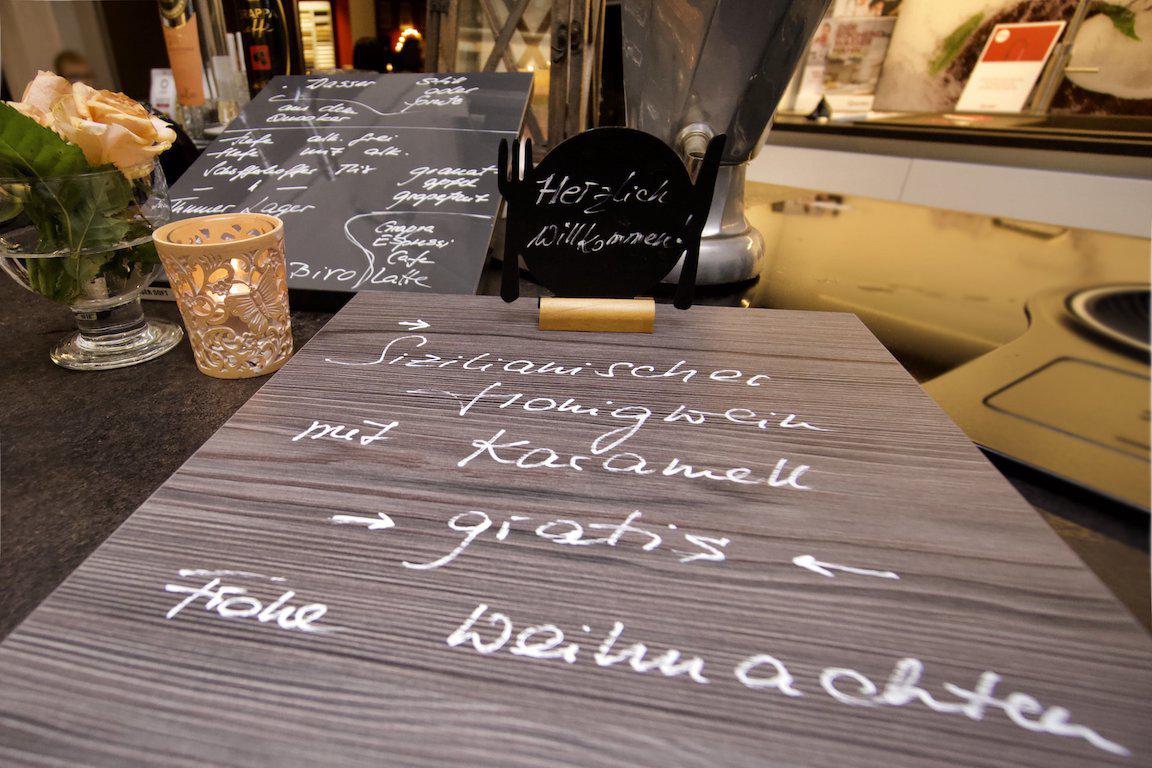 GRAPPA
. Wasser Still
oder
aus dem Sprudel
Quooker
Hefe alk. frei
Hefe mit alk.
Schöfferhoffer Mix granat-
apfel
grapefruit
Lager
Grappa
Espresso
Cafe
Latte
Herzlich
Willkommen!
→
Sizilianischer
Honigwein
mit Karamell
→ gratis ←
Frohe Weihnachten